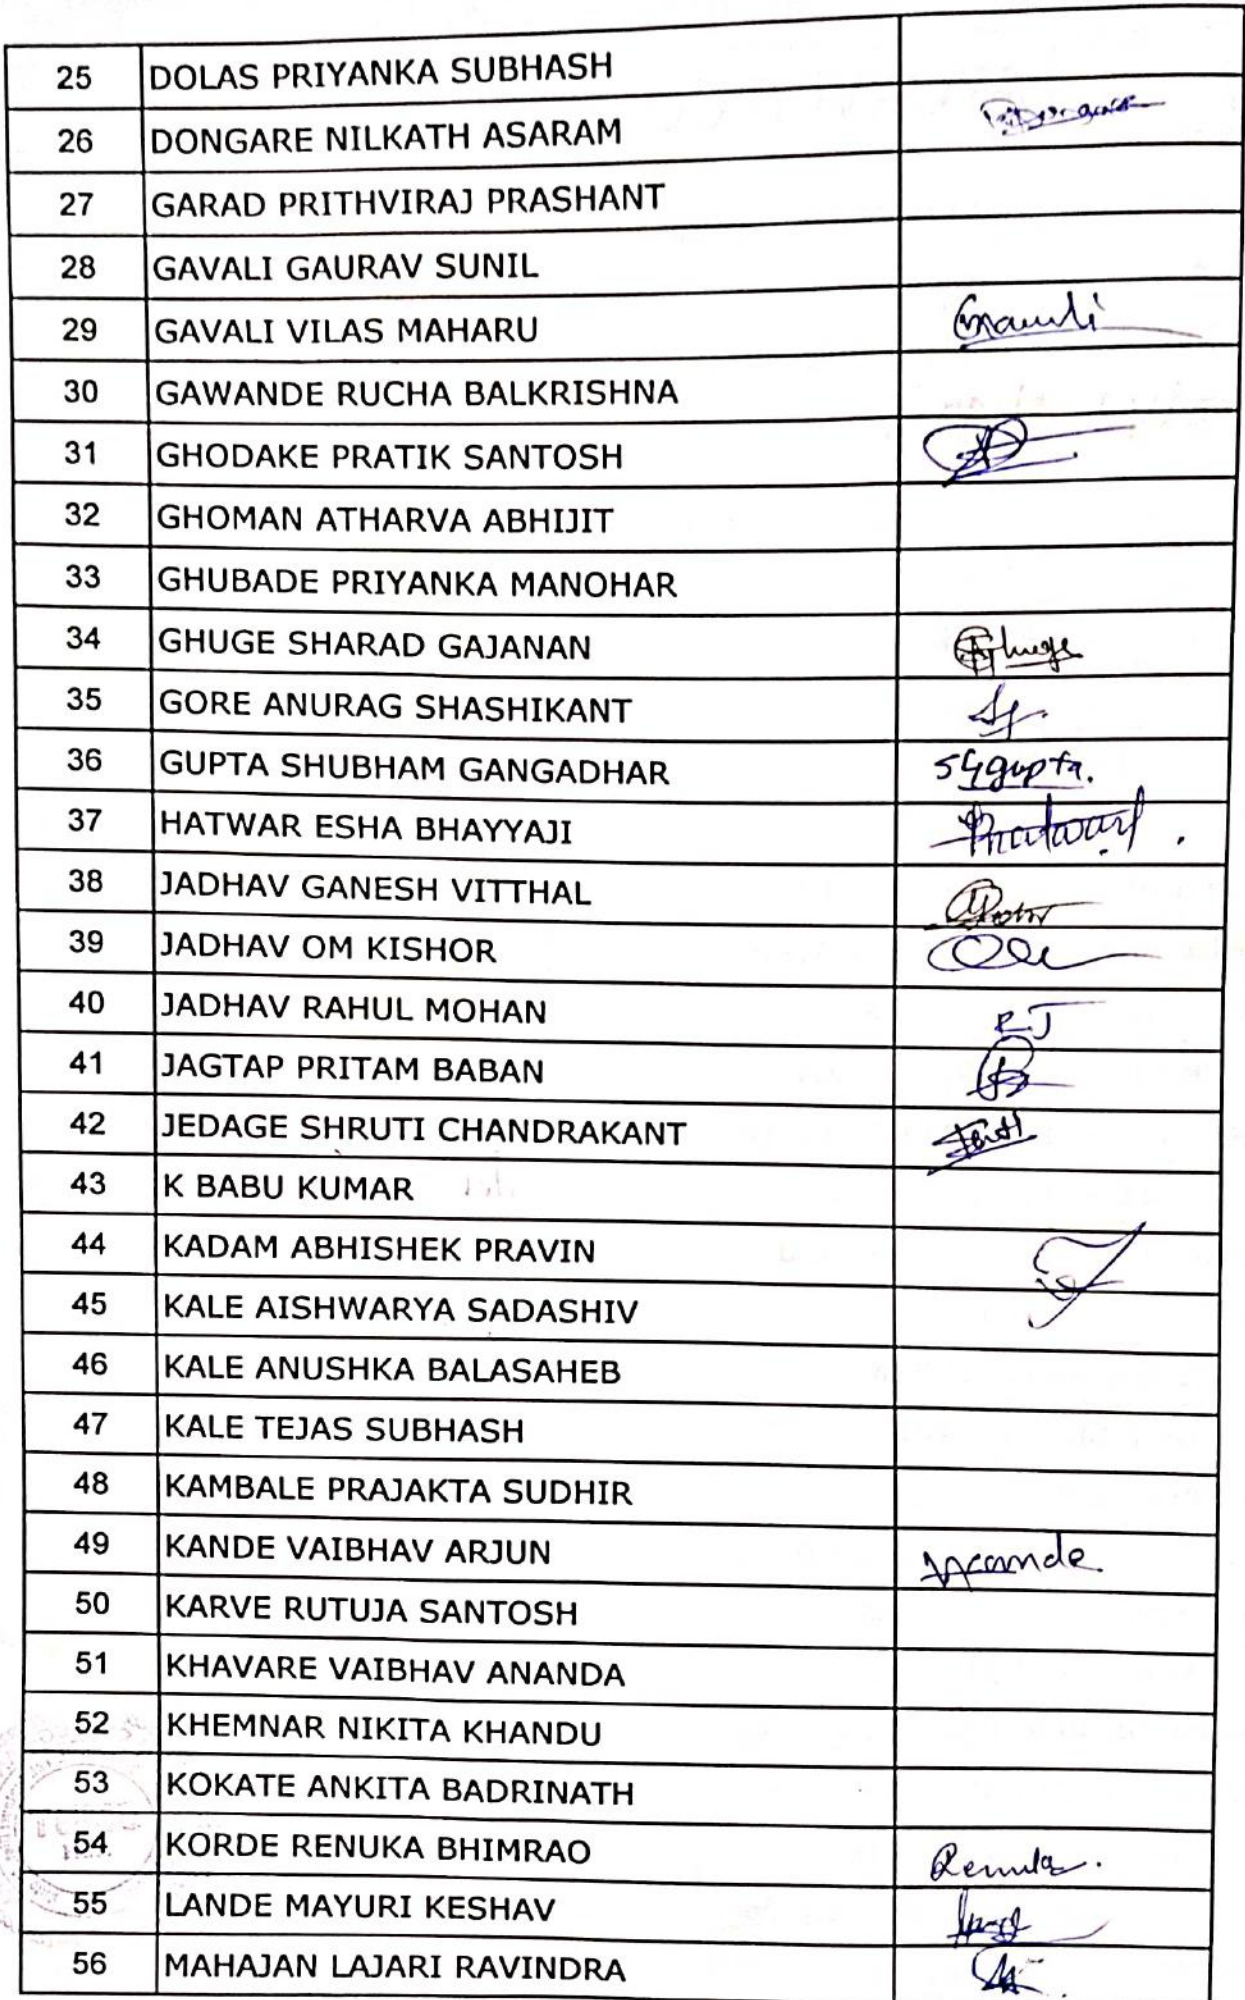 25 DOLAS PRIYANKA SUBHASH
26 DONGARE NILKATH ASARAM
27 GARAD PRITHVIRAJ PRASHANT
28 GAVALI GAURAV SUNIL
29 GAVALI VILAS MAHARU
30 GAWANDE RUCHA BALKRISHNA
31 GHODAKE PRATIK SANTOSH
32 GHOMAN ATHARVA ABHIJIT
33 GHUBADE PRIYANKA MANOHAR
34 GHUGE SHARAD GAJANAN Ghuge
35 GORE ANURAG SHASHIKANT
36 GUPTA SHUBHAM GANGADHAR SGgupta.
37 HATWAR ESHA BHAYYAJI
38 JADHAV GANESH VITTHAL
39 JADHAV OM KISHOR
40 JADHAV RAHUL MOHAN RJ
41 JAGTAP PRITAM BABAN
42 JEDAGE SHRUTI CHANDRAKANT
43 K BABU KUMAR
44 KADAM ABHISHEK PRAVIN
45 KALE AISHWARYA SADASHIV
46 KALE ANUSHKA BALASAHEB
47 KALE TEJAS SUBHASH
48 KAMBALE PRAJAKTA SUDHIR
49 KANDE VAIBHAV ARJUN
50 KARVE RUTUJA SANTOSH
51 KHAVARE VAIBHAV ANANDA
52 KHEMNAR NIKITA KHANDU
53 KOKATE ANKITA BADRINATH
54 KORDE RENUKA BHIMRAO
55 LANDE MAYURI KESHAV
56 MAHAJAN LAJARI RAVINDRA